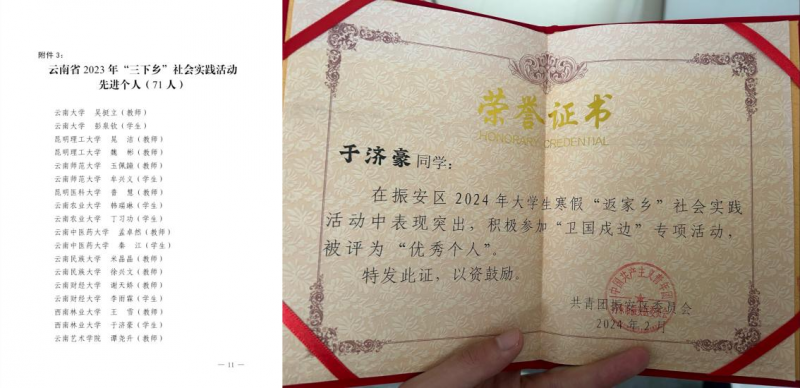 附件3:
云南省2023年“三下乡”社会实践活动
先进个人(71人)
云南大学 吴挺立(教师)
云南大学 彭泉钦(学生)
昆明理工大学 吴 洁(教师)
昆明理工大学 魏 彬(教师)
云南师范大学 王佩瑜(教师)
云南师范大学 牟兴义(学生)
昆明医科大学 普 慧(教师)
云南农业大学 韩瑞琳(学生)
云南农业大学 丁习功(学生)
云南中医药大学 孟卓然(教师)
云南中医药大学 秦 江(学生)
云南民族大学 米晶晶(教师)
云南民族大学 徐兴文(教师)
云南财经大学 谢天娇(教师)
云南财经大学 李雨霖(学生)
西南林业大学 王 雪(教师)
西南林业大学 于济豪(学生)
云南艺术学院 谭尧升(教师)
— 11 —
荣誉证书
HONORARY CREDENTIAL
于济豪同学:
在振安区2024年大学生寒假“返家乡”社会实践
活动中表现突出,积极参加“卫国戍边”专项活动,
被评为“优秀个人”。
特发此证,以资鼓励。
共青团振安区委员会
2024年2月